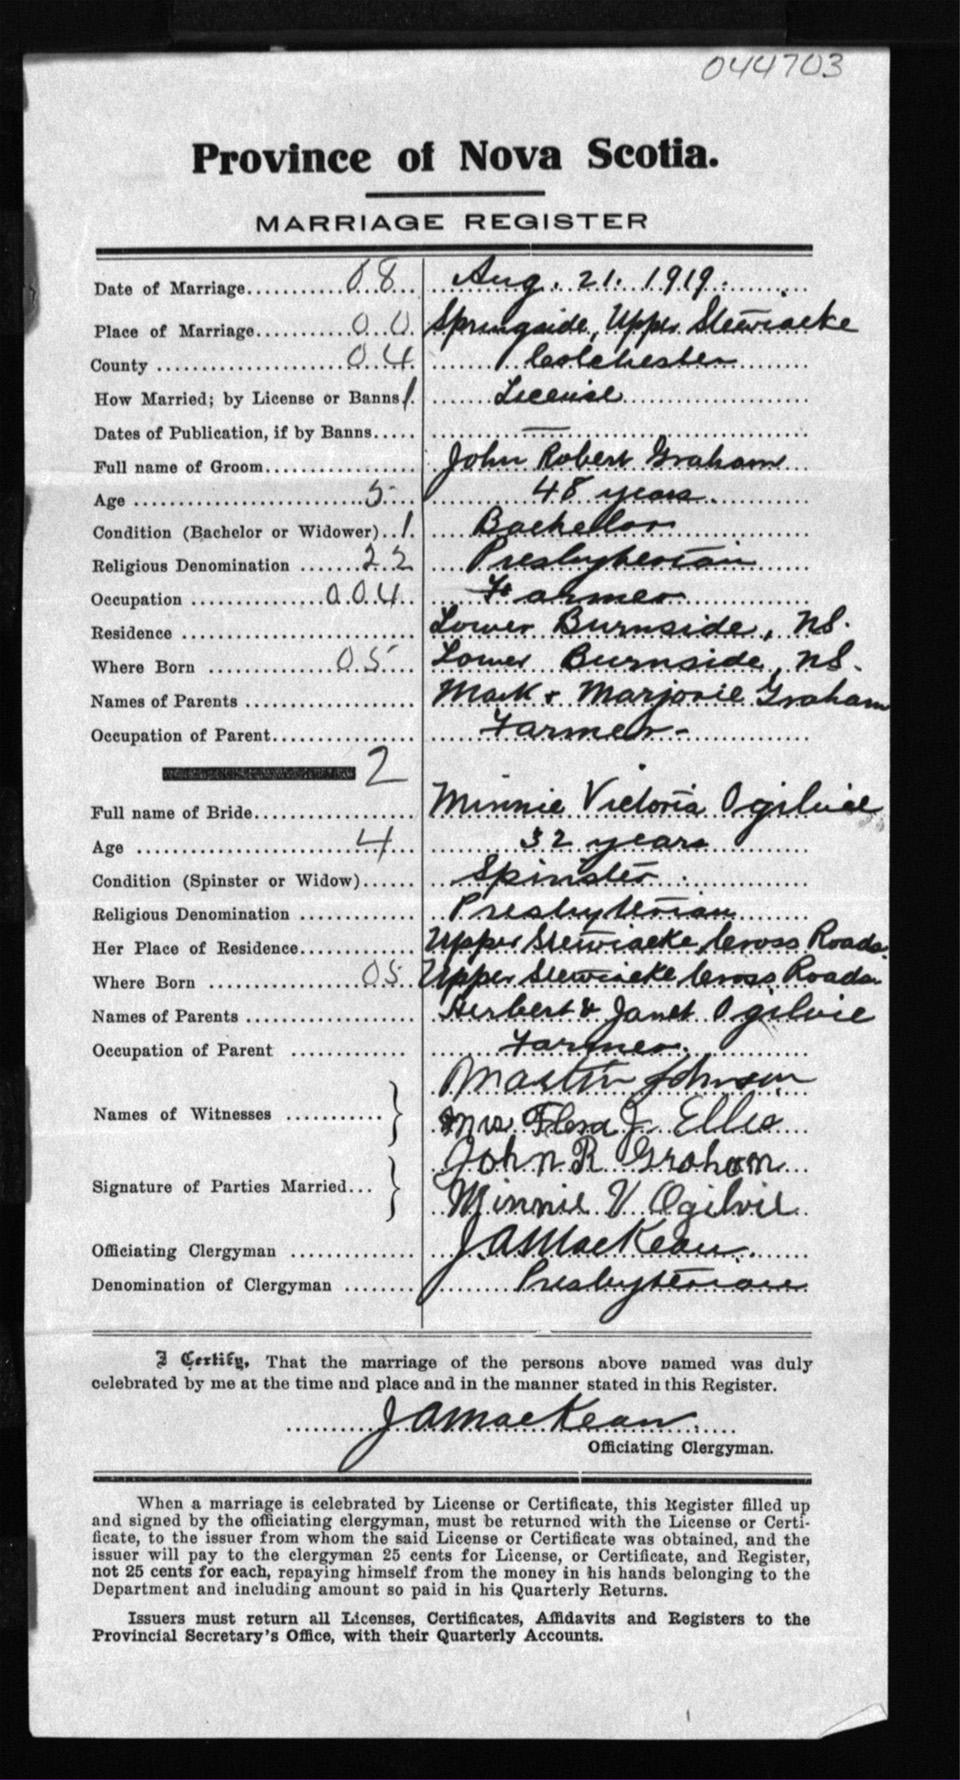 044703
Province of Nova Scotia.
MARRIAGE REGISTER
Date of Marriage............08.. ..Aug. 21. 1919.
Place of Marriage...........00.. Springside, Upper Stewiacke
County .....................04. ....Colchester....
How Married; by License or Banns 1. ......License......
Dates of Publication, if by Banns..... ......—......
Full name of Groom................ ..John Robert Graham..
Age ......................5.. ......48 years......
Condition (Bachelor or Widower)..1. ....Bachellor....
Religious Denomination ......22 ....Presbyterian....
Occupation ..............004.. ....Farmer....
Residence ........................ Lower Burnside, NS.
Where Born ............05.. Lower Burnside, NS.
Names of Parents .................. Mark & Marjorie Graham
Occupation of Parent................ ....Farmer-....
2
Full name of Bride.................. Minnie Victoria Ogilvie
Age ......................4.. ......32 years......
Condition (Spinster or Widow)...... ....Spinster....
Religious Denomination ............ ..Presbyterian....
Her Place of Residence............. Upper Stewiacke Cross Roads.
Where Born ................05 Upper Stewiacke Cross Roads
Names of Parents .................. Herbert & Janet Ogilvie
Occupation of Parent ............. ......Farmer.....
Martin Johnson
Names of Witnesses ........... }
Mrs Flora J. Ellis
John R Graham
Signature of Parties Married... }
Minnie V Ogilvie
Officiating Clergyman ............. ..J.A.MacKean.....
Denomination of Clergyman ........ ......Presbyterian
I Certify, That the marriage of the persons above named was duly
celebrated by me at the time and place and in the manner stated in this Register.
..........JAMacKean......
Officiating Clergyman.
When a marriage is celebrated by License or Certificate, this Register filled up
and signed by the officiating clergyman, must be returned with the License or Certi-
ficate, to the issuer from whom the said License or Certificate was obtained, and the
issuer will pay to the clergyman 25 cents for License, or Certificate, and Register,
not 25 cents for each, repaying himself from the money in his hands belonging to the
Department and including amount so paid in his Quarterly Returns.
Issuers must return all Licenses, Certificates, Affidavits and Registers to the
Provincial Secretary's Office, with their Quarterly Accounts.